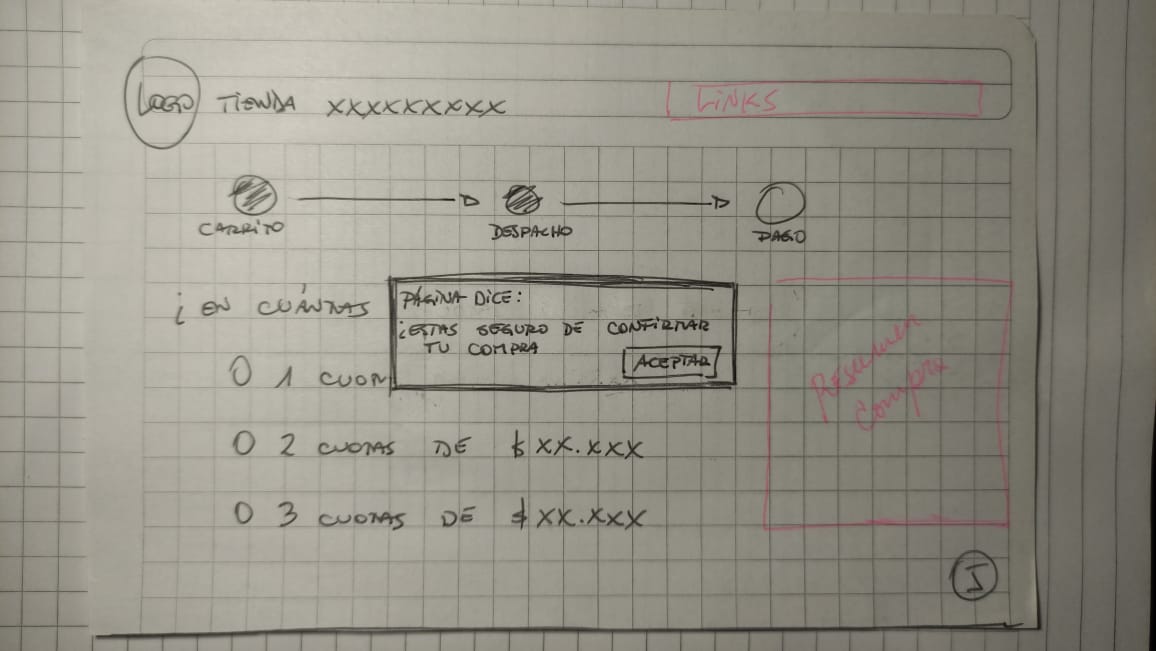 LOGO TIENDA XXXXXXXXX
LINKS
CARRITO
DESPACHO
PAGO
¿ EN CUÁNTAS
PÁGINA DICE:
¿ESTAS SEGURO DE CONFIRMAR
TU COMPRA
ACEPTAR
O 1 CUOT
O 2 CUOTAS DE $ XX.XXX
O 3 CUOTAS DE $ XX.XXX
Resumen
Compra